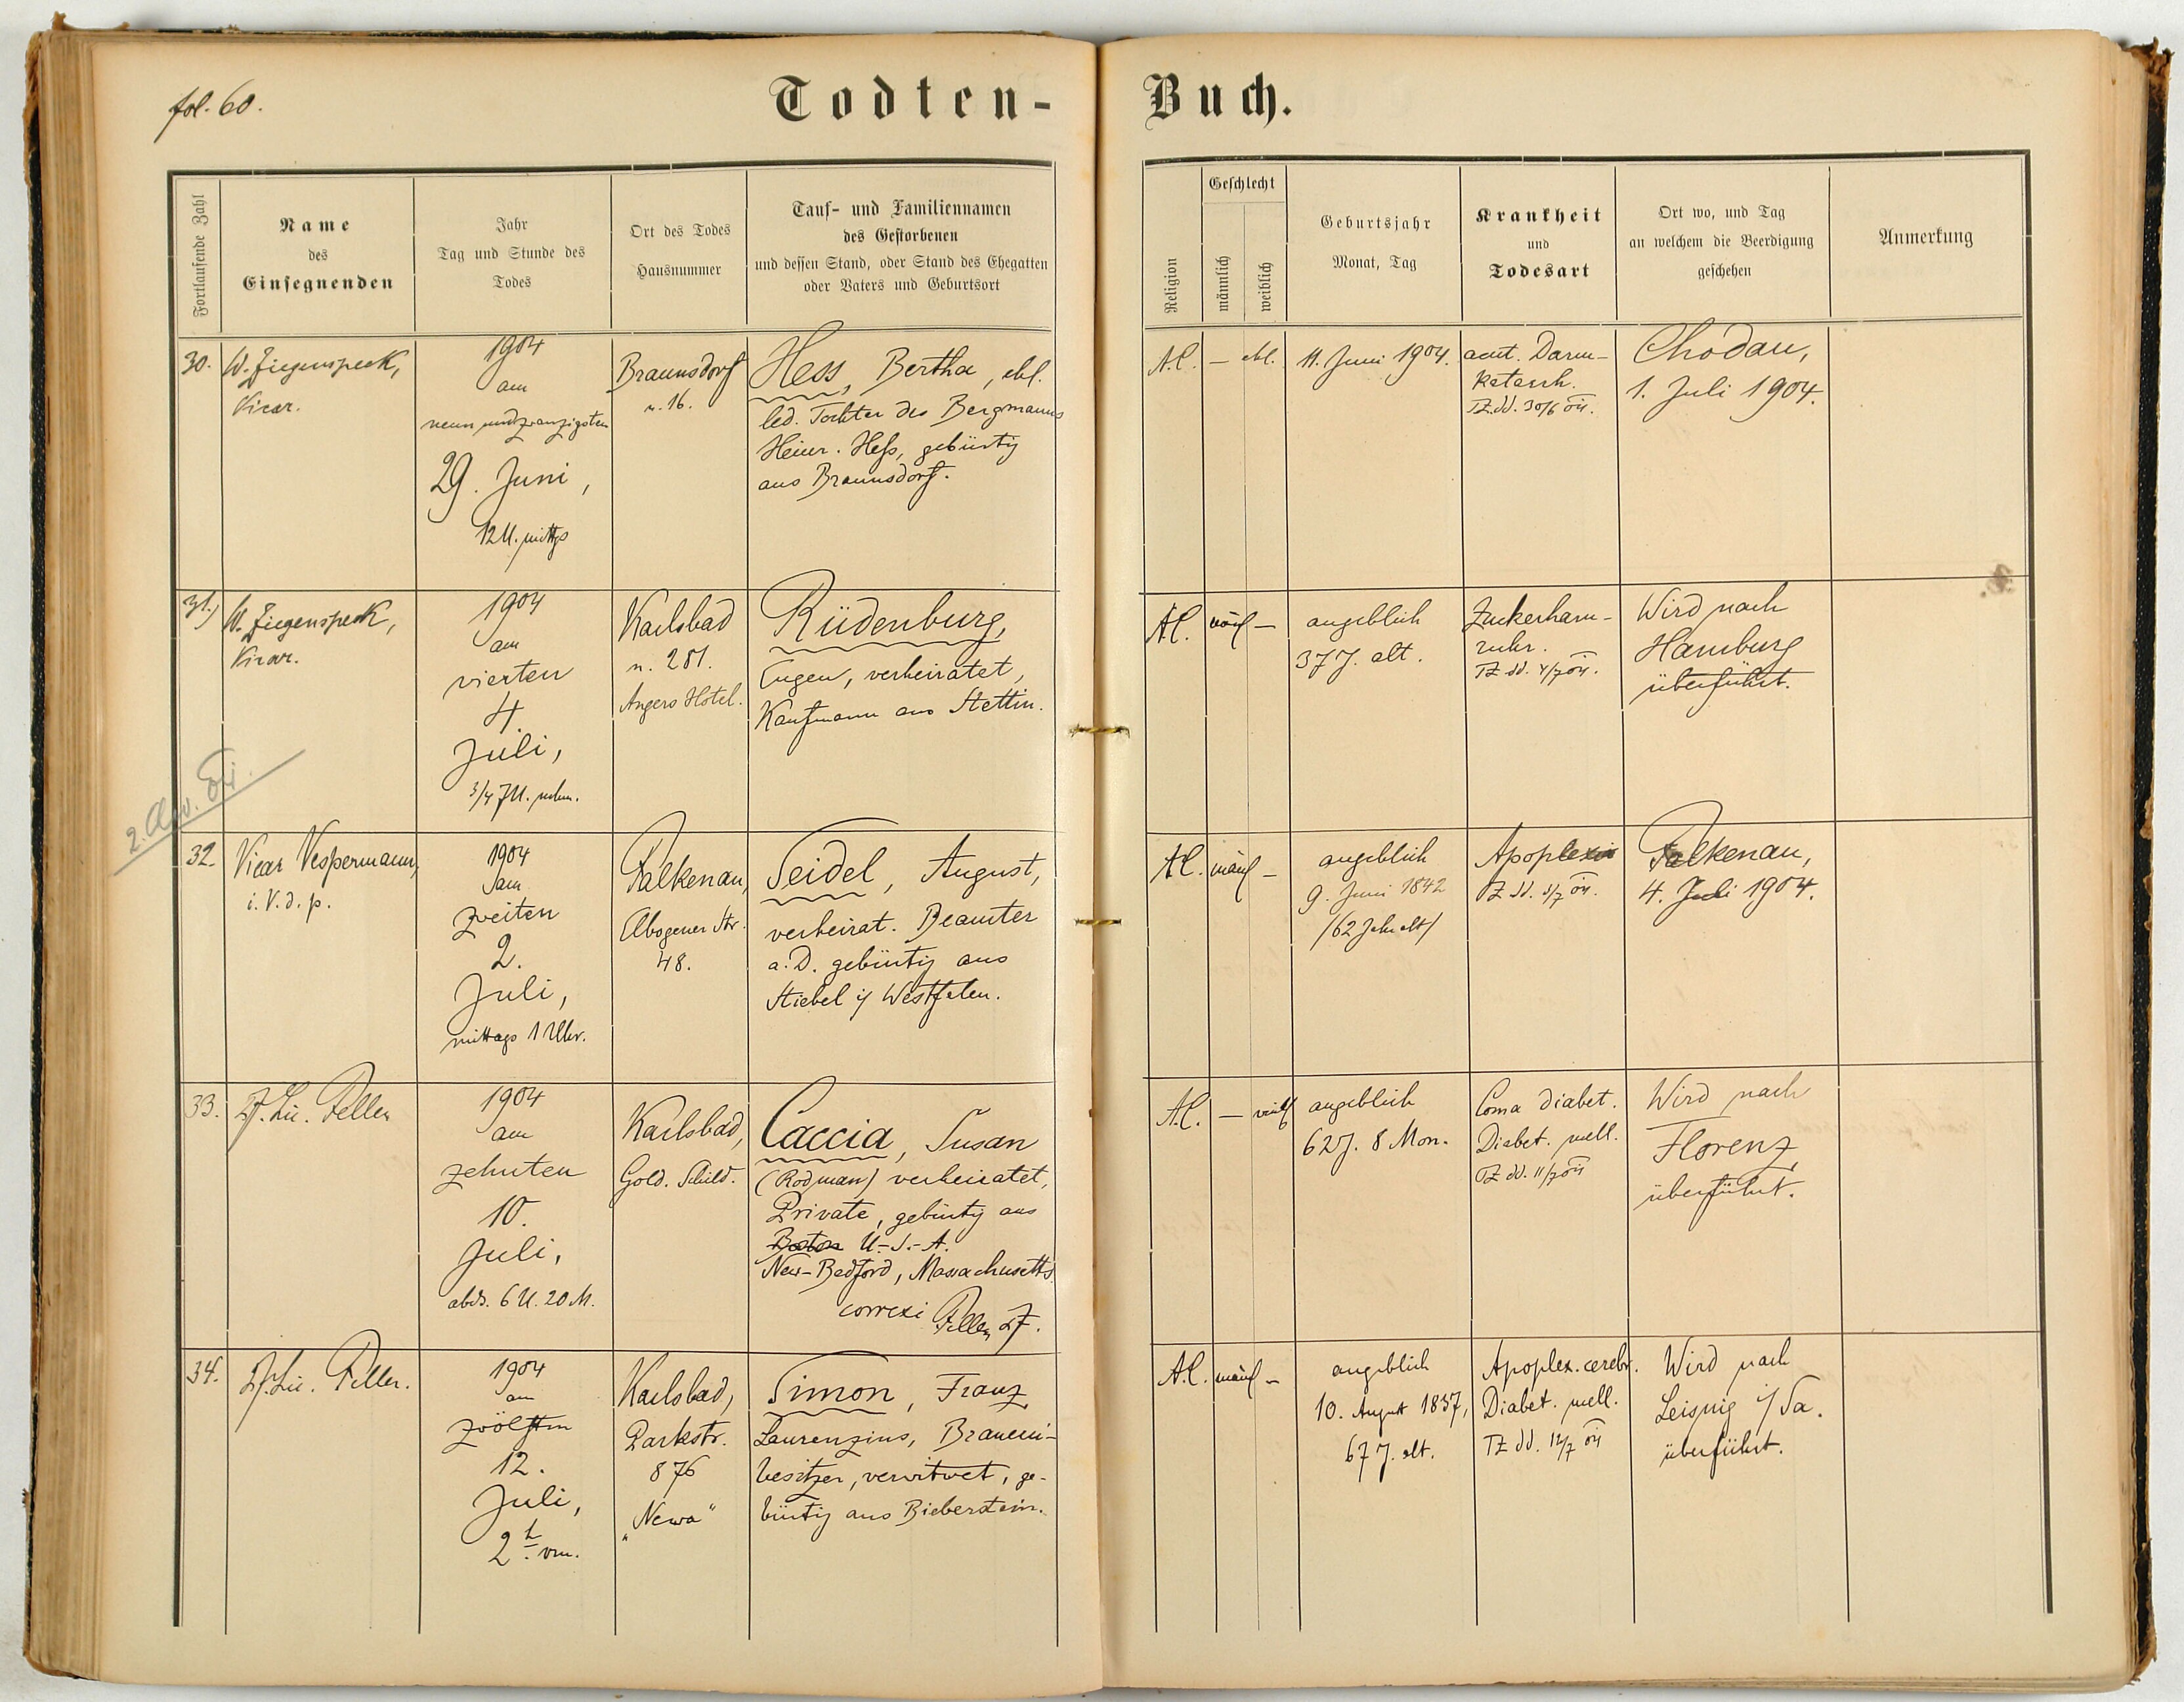 fol. 60.
Todten-
Fortlaufende Zahl
Name
des
Einsegnenden
Jahr
Tag und Stunde des
Todes
Ort des Todes
Hausnummer
Tauf- und Familiennamen
des Gestorbenen
und dessen Stand, oder Stand des Ehegatten
oder Vaters und Geburtsort
30.
W. Ziegenspeck,
Vicar.
1904
am
neunundzwanzigsten
29. Juni,
12 U. mittgs
Braunsdorf
n. 16.
Hess, Bertha, ehl.
led. Tochter des Bergmanns
Heinr. Heß, gebürtig
aus Braunsdorf.
31.)
W. Ziegenspeck,
Vicar.
1904
am
vierten
4.
Juli,
3/4 7 U. nchm.
Karlsbad
n. 281.
Angers Hotel.
Rüdenburg,
Eugen, verheiratet,
Kaufmann aus Stettin.
2.
32.
Vicar Vespermann,
i. V. d. p.
1904
am
zweiten
2.
Juli,
mittags 1 Uhr.
Falkenau,
Elbogener Str.
48.
Seidel, August,
verheirat. Beamter
a. D. gebürtig aus
Stiebel i/ Westfalen.
33.
Pf. Lic. Feller
1904
am
zehnten
10.
Juli,
abds. 6 U. 20 M.
Karlsbad,
Gold. Schild.
Caccia, Susan
(Rodman) verheiratet,
Private, gebürtig aus
Boston U.-S.-A.
New-Bedford, Massachusetts
correxi Feller Pf.
34.
Pf. Lic. Feller.
1904
am
zwölften
12.
Juli,
2 h. vm.
Karlsbad,
Parkstr.
876
"Newa"
Simon, Franz
Laurenzius, Brauerei-
besitzer, verwitwet, ge-
bürtig aus Bieberstein.
Buch.
Religion
Geschlecht
männlich
weiblich
Geburtsjahr
Monat, Tag
Krankheit
und
Todesart
Ort wo, und Tag
an welchem die Beerdigung
geschehen
Anmerkung
A.C.
—
11. Juni 1904.
acut. Darm-
katarrh.
TZ. dd. 30/6 04.
Chodau,
1. Juli 1904.
A.C.
männl
—
angeblich
37 J. alt.
Zuckerharn-
ruhr.
TZ dd. 4/7 04.
Wird nach
Hamburg
überführt.
A.C.
männl
—
angeblich
9. Juni 1842
/62 Jahr alt/
Apoplexie
TZ dd. 3/7 04.
Falkenau,
4. Juli 1904.
A.C.
—
weibl
angeblich
62 J. 8 Mon.
Coma diabet.
Diabet. mell.
TZ dd. 11/7 04
Wird nach
Florenz
überführt.
A.C.
männl
—
angeblich
10. August 1837,
67 J. alt.
Apoplex. cerebr.
Diabet. mell.
TZ dd. 12/7 04
Wird nach
Leisnig i/ Sa.
überführt.